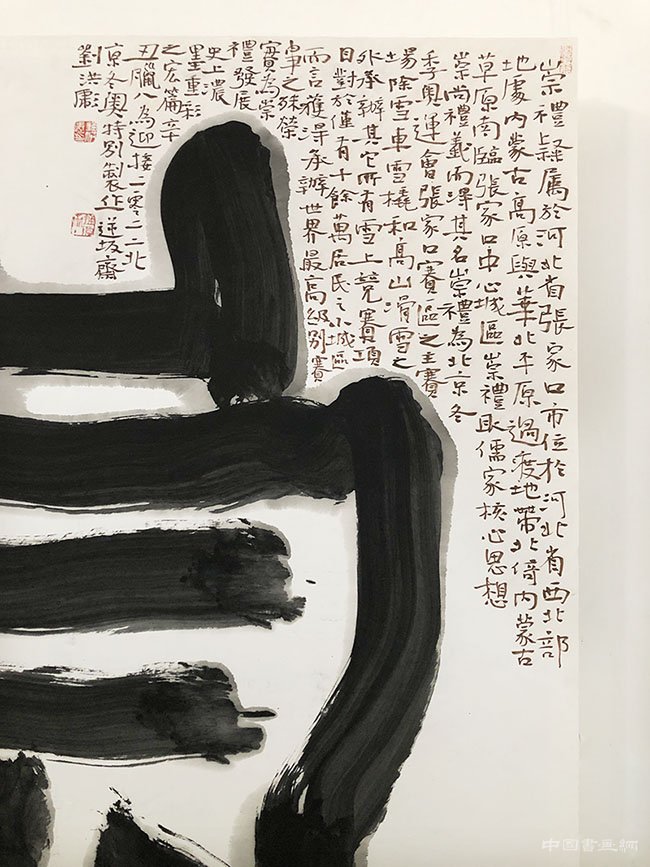 崇禮隸屬於河北省張家口市位於河北省西北部
地處內蒙古高原與華北平原過渡地帶北倚內蒙古
草原南臨張家口中心城區崇禮取儒家核心思想
崇尚禮義而澤其名崇禮為北京冬
季奧運會張家口賽區之主賽
場除雪車雪橇和高山滑雪之
外承辦其它所有雪上競賽項
目對於僅有十餘萬居民之小城區
而言獲得承辦世界最高級別賽
事之殊榮
實為崇
禮發展
史上濃
墨重彩
之宏篇辛
丑臘八為迎接二零二二北
京冬奧特別製作逆坂齋
劉洪彪
中国書画網